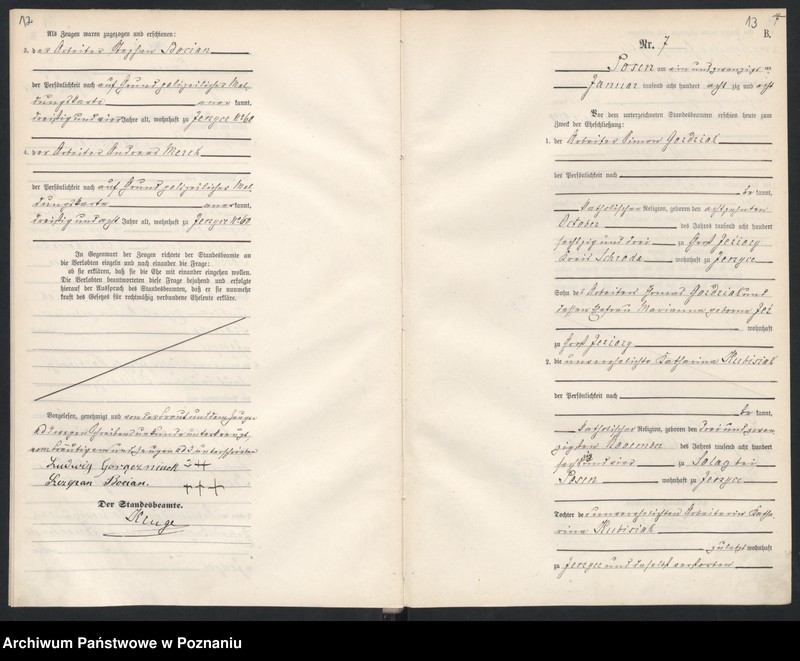 12
Als Zeugen waren zugezogen und erschienen:
3. der Arbeiter Stephan Bocian
der Persönlichkeit nach auf Grund polizeilicher Mel-
dungskarte anerkannt,
dreißig und vier Jahre alt, wohnhaft zu Jerzyce No 60
4. der Arbeiter Andreas Merek
der Persönlichkeit nach auf Grund polizeilicher Mel-
dungskarte anerkannt,
dreißig und acht Jahre alt, wohnhaft zu Jerzyce No 60
In Gegenwart der Zeugen richtete der Standesbeamte an
die Verlobten einzeln und nach einander die Frage:
ob sie erklären, daß sie die Ehe mit einander eingehen wollen.
Die Verlobten beantworteten diese Frage bejahend und erfolgte
hierauf der Ausspruch des Standesbeamten, daß er sie nunmehr
kraft des Gesetzes für rechtmäßig verbundene Eheleute erkläre.
Vorgelesen, genehmigt und von der Braut und dem Zeugen
wegen Schreibensunkunde unterkreuzt,
vom Bräutigam und Zeugen unterschrieben
Ludwig +++
Bocian. +++
Der Standesbeamte.
Kluge
13
B.
Nr. 7
Posen am ein und zwanzigsten
Januar tausend acht hundert achtzig und acht
Vor dem unterzeichneten Standesbeamten erschien heute zum
Zweck der Eheschließung:
1. der Arbeiter Simon Goździak
der Persönlichkeit nach
bekannt,
katholischer Religion, geboren den achtzehnten
October des Jahres tausend acht hundert
sechszig und drei zu Groß Jeziory
Kreis Schroda wohnhaft zu Jerzyce
Sohn des Arbeiters Goździak und
dessen Ehefrau Marianna geborne
wohnhaft
zu Groß Jeziory
2. die unverehelichte Katharina Kubisiak
der Persönlichkeit nach
bekannt,
katholischer Religion, geboren den drei und zwan-
zigsten November des Jahres tausend acht hundert
sechszig und vier zu Solacz bei
Posen wohnhaft zu Jerzyce
Tochter der unverehelichten Arbeiterin Katha-
rina Kubisiak
zuletzt wohnhaft
zu Jerzyce und daselbst verstorben
Archiwum Państwowe w Poznaniu